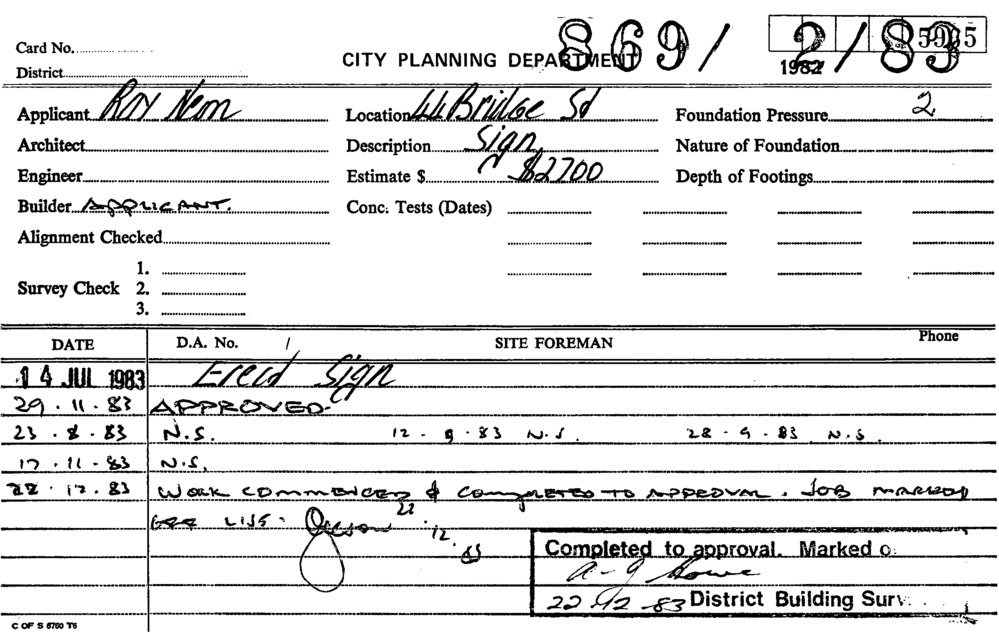 Card No. 869/2/83 5925
CITY PLANNING DEPARTMENT 1982
District
Applicant Roy Neon Location 44 Bridge St Foundation Pressure 2
Architect Description Sign Nature of Foundation
Engineer Estimate $ $2700 Depth of Footings
Builder APPLICANT. Conc. Tests (Dates)
Alignment Checked
1.
Survey Check 2.
3.
DATE D.A. No. / SITE FOREMAN Phone
14 JUL 1983 Erect Sign
29.11.83 APPROVED-
23.8.83 N.S. 12-9-83 N.S. 28-9-83 N.S.
17.11.83 N.S.
22.12.83 WORK COMMENCED & COMPLETED TO APPROVAL. JOB MARKED
OFF LIST- 22.12.83
Completed to approval. Marked o
22.12.83 District Building Surv
C OF S 6780 T6